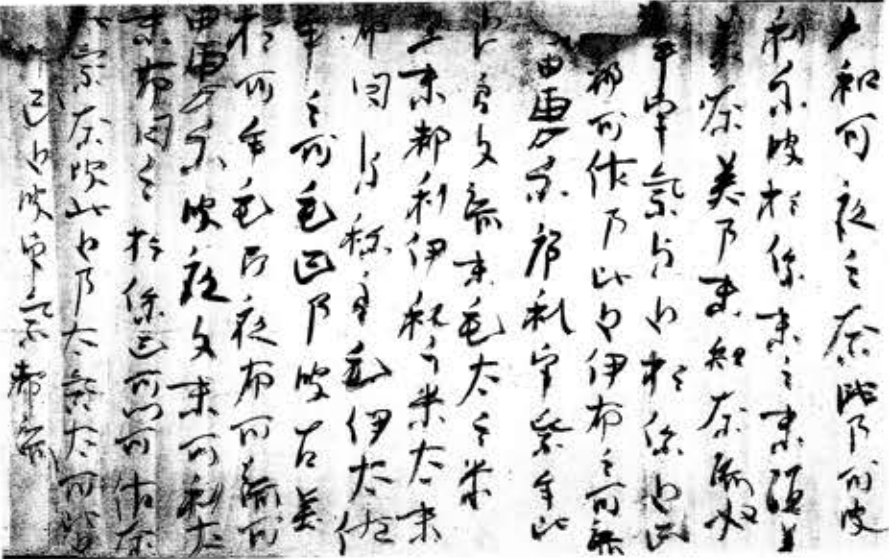 和可夜之奈比乃可波
利尓波於保末之末須
美奈美乃末知奈流奴
乎宇気与止於保止己
都可佐乃比止伊布之可流
可由恵尓序礼宇気牟比
止良久流末毛太之米
弖末都利伊礼之米太末
布日与祢良毛伊太佐
牟之可毛己乃波古美
於可牟毛阿夜布可流可
由恵尓波夜久末可利太
末布日之於保己可川可佐奈
比気奈波比止乃太気太可比止
序己止波宇気都流